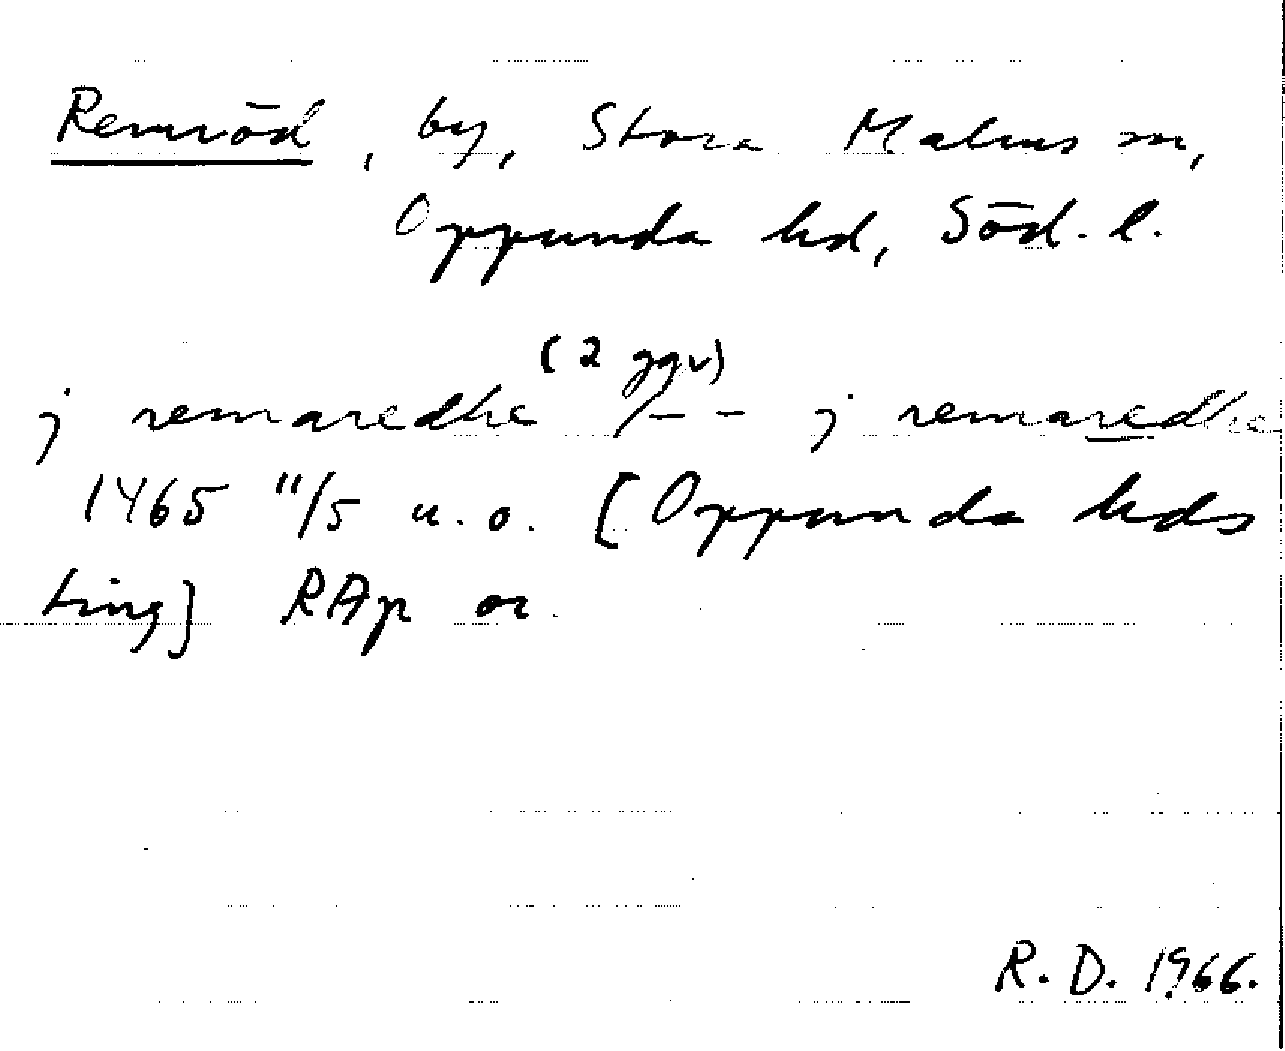 Remröd, by, Stora Malms sn,
Oppunda hd, Söd. l.
(2 ggr)
j remaredhe /-- j remaredhe
1465 11/5 u.o. [Oppunda hds
ting] RAp or.
R. D. 1966.